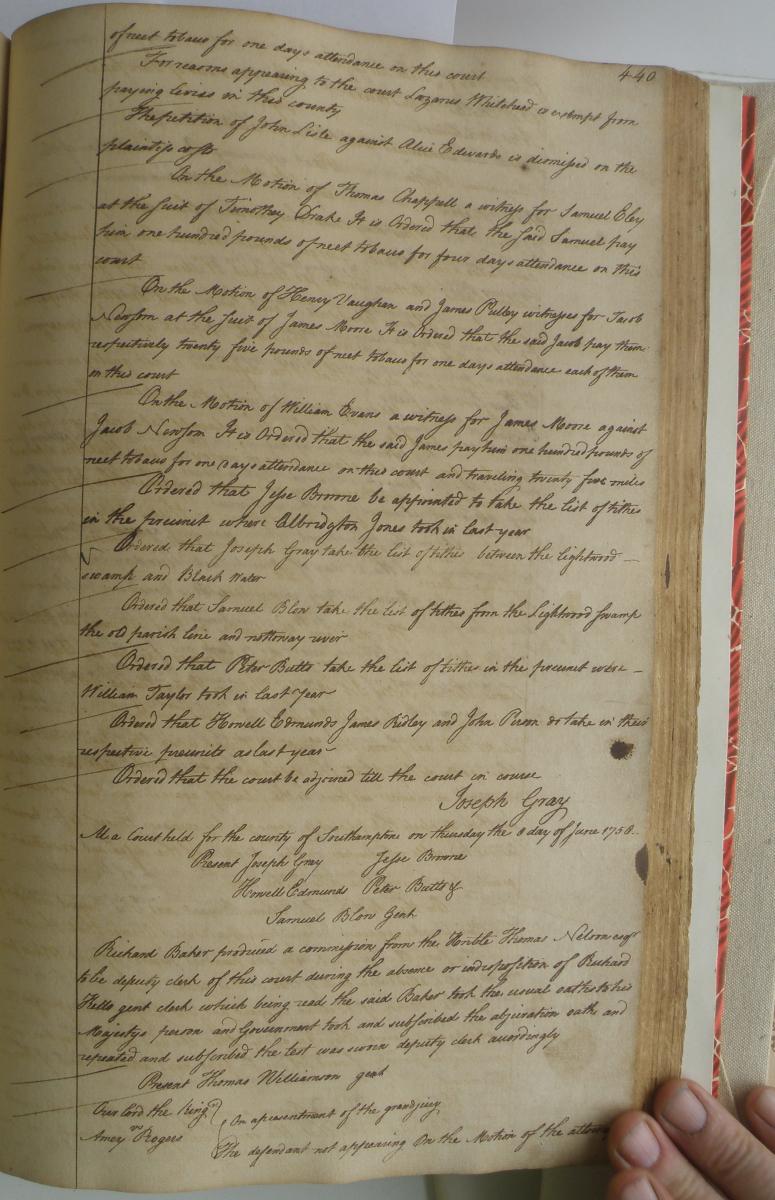 440
of neet tobaco for one days attendance on this court
For reasons appearing to the court Lazarus Whitehead is exempt from
paying levies in this county
The petition of John Lisle against Alice Edwards is dismissed on the
plaintifs costs
On the Motion of Thomas Chappell a witness for Samuel Eley
at the Suit of Timothey Drake It is Ordered that the said Samuel pay
him one hundred pounds of neet tobaco for four days attendance on this
court
On the Motion of Henry Vaughan and James Pulley witnesses for Jacob
Newsom at the Suit of James Moore It is Ordered that the said Jacob pay them
respectively twenty five pounds of neet tobaco for one days attendance each of them
on this court
On the Motion of William Evans a witness for James Moore against
Jacob Newsom It is Ordered that the said James pay him one hundred pounds of
neet tobaco for one days attendance on this court and traveling twenty five miles
Ordered that Jesse Browne be appointed to take the list of tithes
in the precinct where Albridgton Jones took in last year
Ordered that Joseph Gray take the list of tithes between the Lightwood
swamp and Black Water
Ordered that Samuel Blow take the list of tithes from the Lightwood Swamp
the old parish line and nottoway river
Ordered that Peter Butts take the list of tithes in the precinct were
William Taylor took in last Year
Ordered that Howell Edmunds James Ridley and John Person do take in their
respective precincts as last year
Ordered that the court be adjoined till the court in course
Joseph Gray
At a Court held for the county of Southampton on thursday the 8 day of June 1758
Present Joseph Gray Jesse Browne
Howell Edmunds Peter Butts &
Samuel Blow Gent
Richard Baker produced a commission from the Honble Thomas Nelson esqr
to be deputy clerk of this court during the absence or indisposition of Richard
Kello gent clerk which being read the said Baker took the usual oaths to his
Majestys person and Government took and subscribed the abjuration oath and
repeated and subscribed the test was sworn deputy clerk accordingly
Present Thomas Williamson gent
Our lord the King
vs
Amey Rogers
On a presentment of the grandjury
The defendant not appearing On the Motion of the